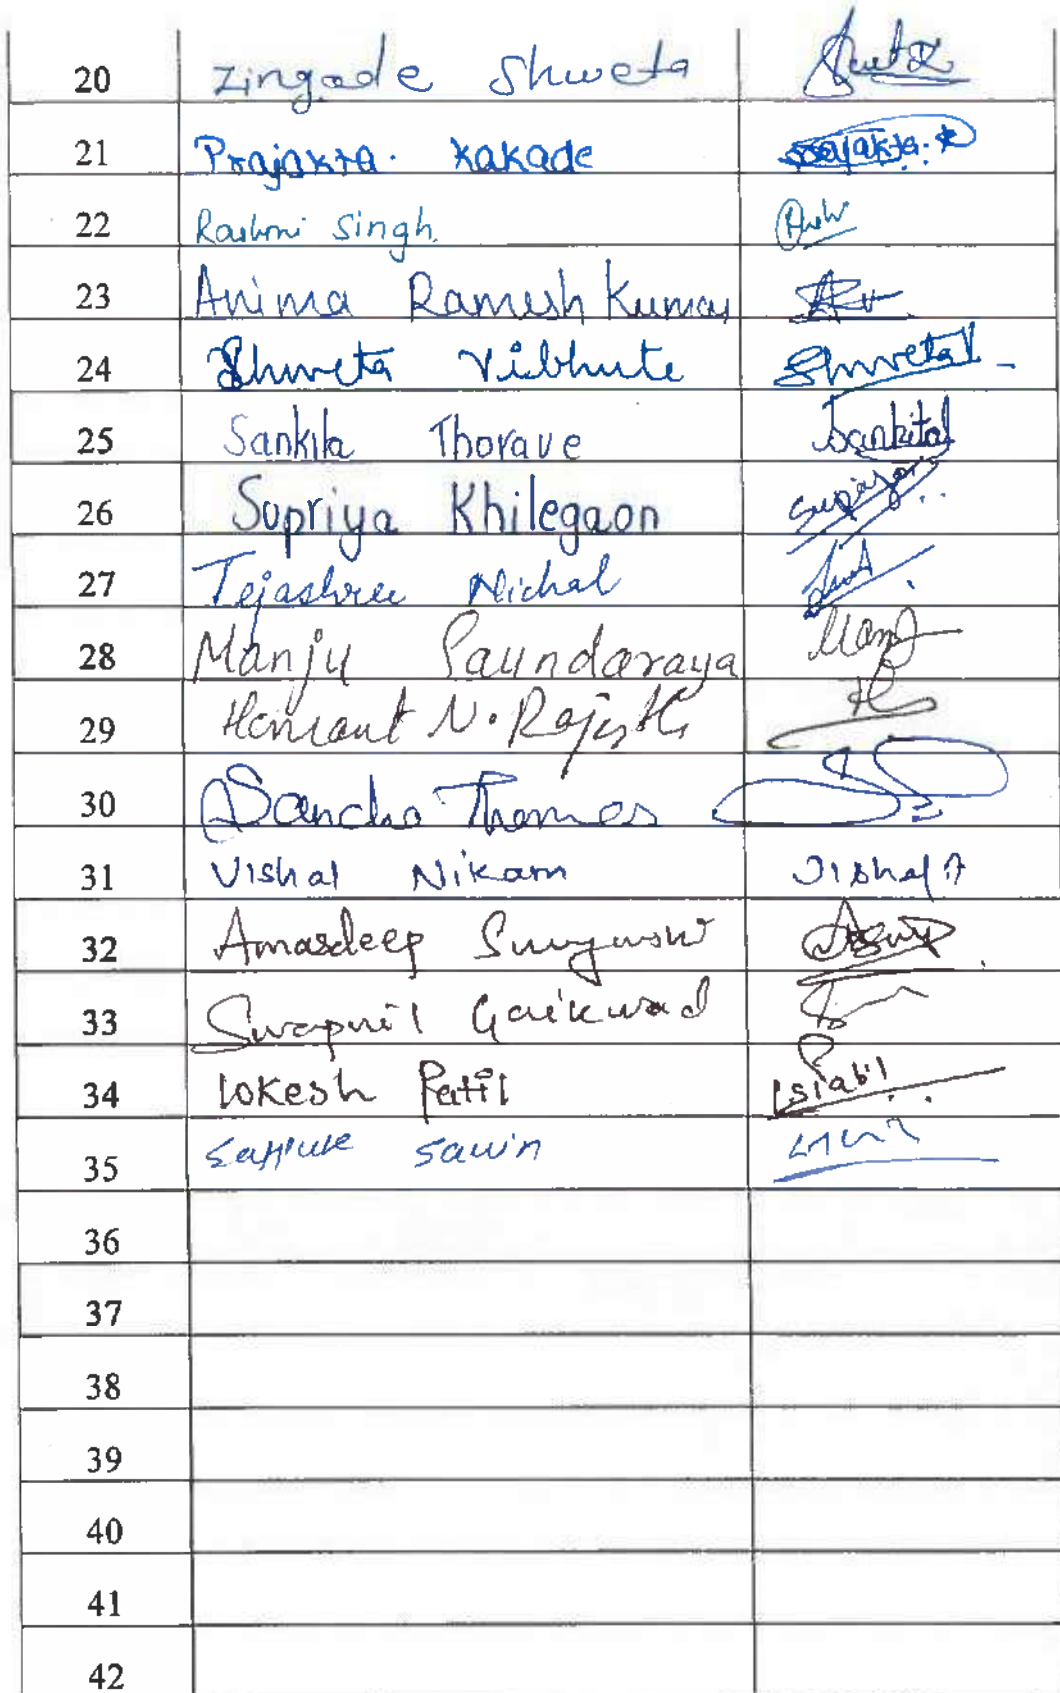 20 Zingade Shweta
21 Prajakta. Kakade
22 Rashmi Singh.
23 Anima Ramesh Kumar
24 Shweta Vibhute Shweta
25 Sankita Thorave Sankita
26 Supriya Khilegaon Supriya
27 Tejashree Nichal
28 Manju Saundaraya Manj
29 Hemant N.
30 Sancha Thomas
31 Vishal Nikam Vishal
32 Amardeep
33 Swapnil Gaikwad
34 Lokesh Patil
35 Sawin
36
37
38
39
40
41
42